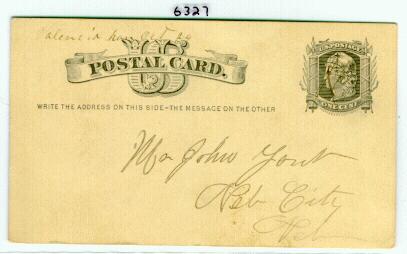 6327
Valencia Kan Oct 20
US
POSTAL CARD.
U.S. POSTAGE
ONE CENT
WRITE THE ADDRESS ON THIS SIDE-THE MESSAGE ON THE OTHER
Mr John Yont
Neb City
Neb